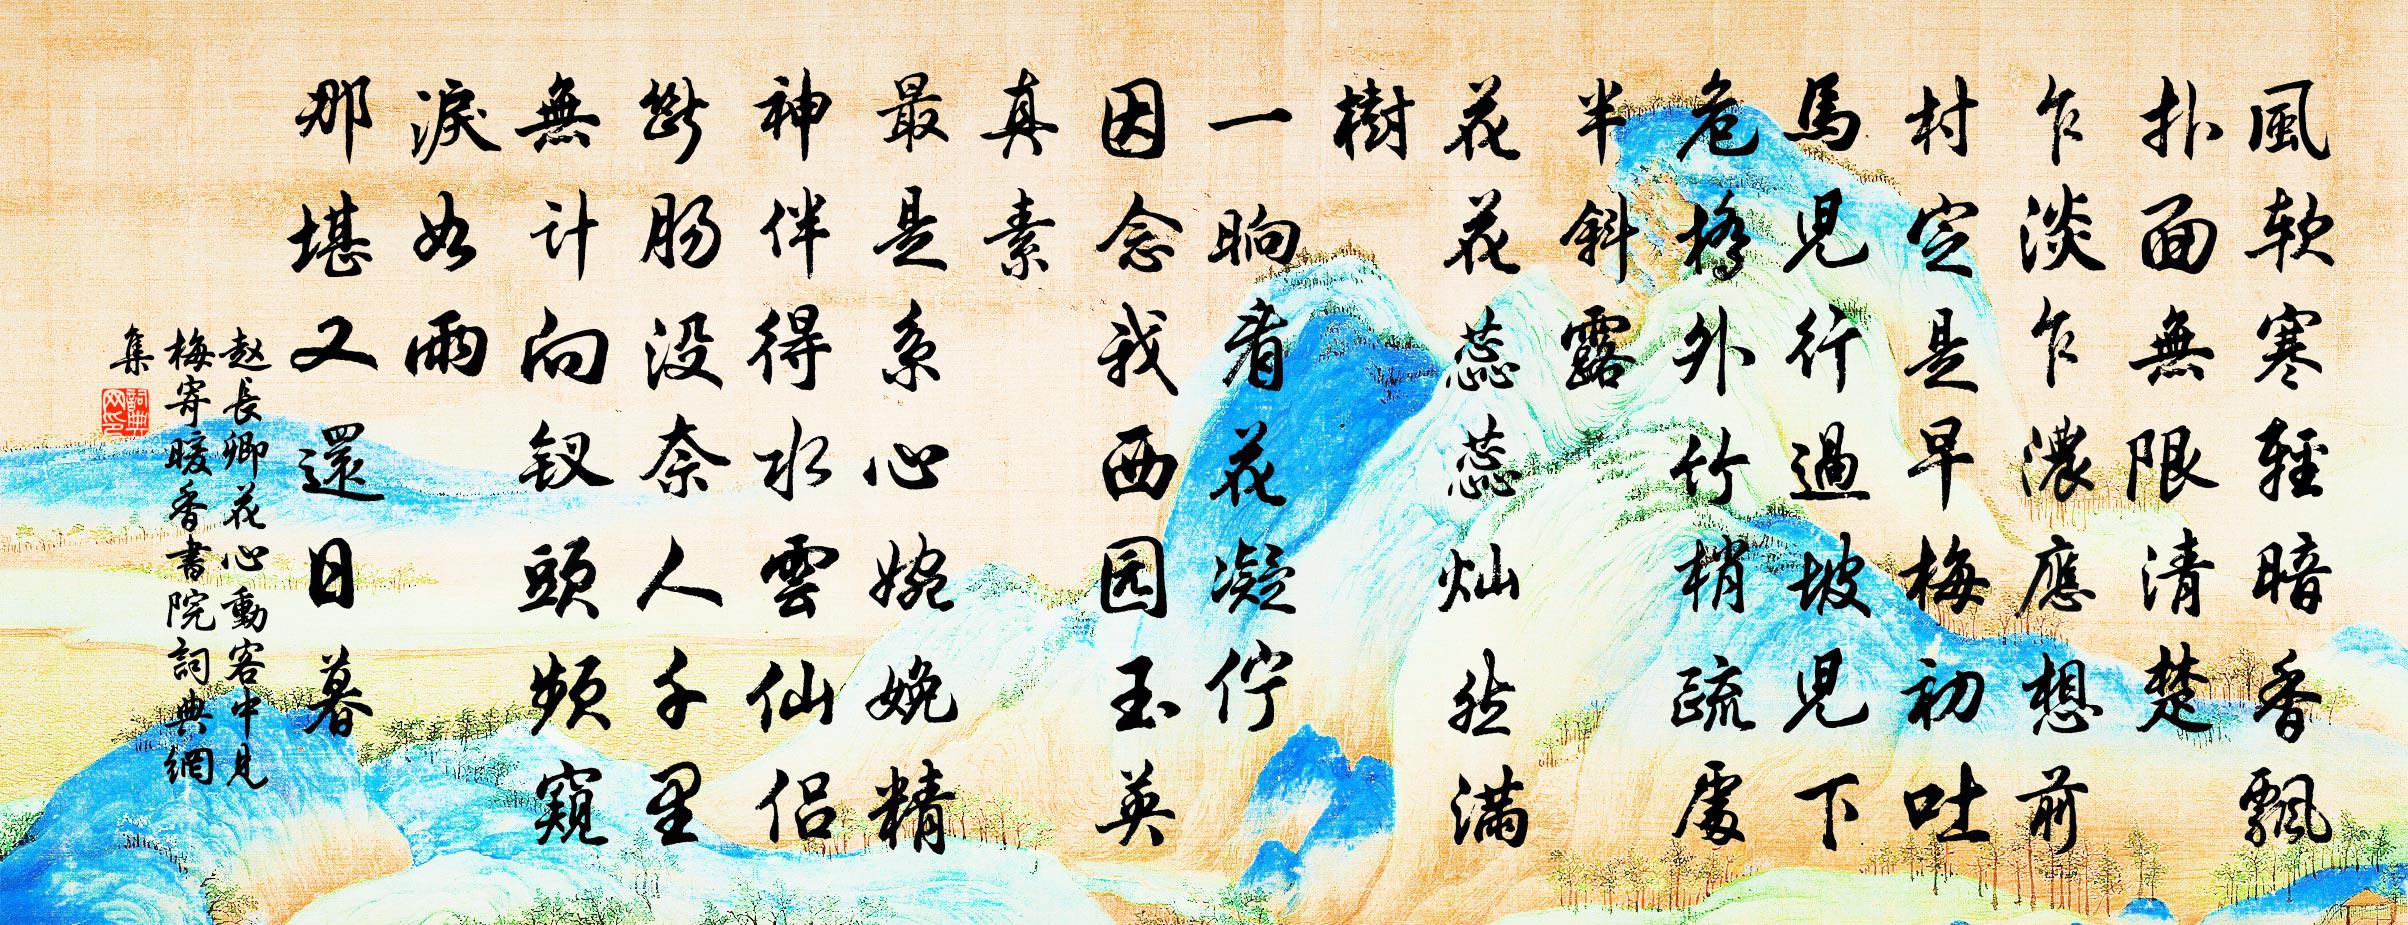 風软寒輕暗香飄
扑面無限清楚
乍淡乍濃應想前
村定是早梅初吐
馬児行過坡児下
危橋外竹梢疏處
半斜露
花花蕊蕊灿然满
樹
一晌看花凝佇
因念我西园玉英
真素
最是系心婉娩精
神伴得水雲仙侣
断肠没奈人千里
無計向钗頭頻窺
淚如雨
那堪又還日暮
赵長卿花心動客中見
梅寄暖香書院詞典網
集
詞典网印